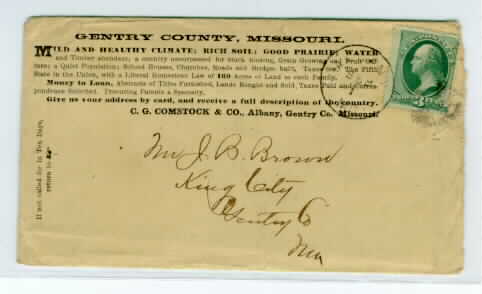 GENTRY COUNTY, MISSOURI.
MILD AND HEALTHY CLIMATE; RICH SOIL; GOOD PRAIRIE, WATER
and Timber abundant; a country unsurpassed for Stock Raising, Grain Growing and Fruit Cul-
ture; a Quiet Population; School Houses, Churches, Roads and Bridges built, Taxes low. The Fifth
State in the Union, with a Liberal Homestead Law of 160 Acres of Land to each Family.
Money to Loan, Abstracts of Titles Furnished, Lands Bought and Sold, Taxes Paid and Corres-
pondence Solicited. Procuring Patents a Specialty.
Give us your address by card, and receive a full description of the country.
C. G. COMSTOCK & CO., Albany, Gentry Co. Missouri.
If not called for in Ten Days,
return to
Mr J. B. Brown
King City
Gentry Co
Mo